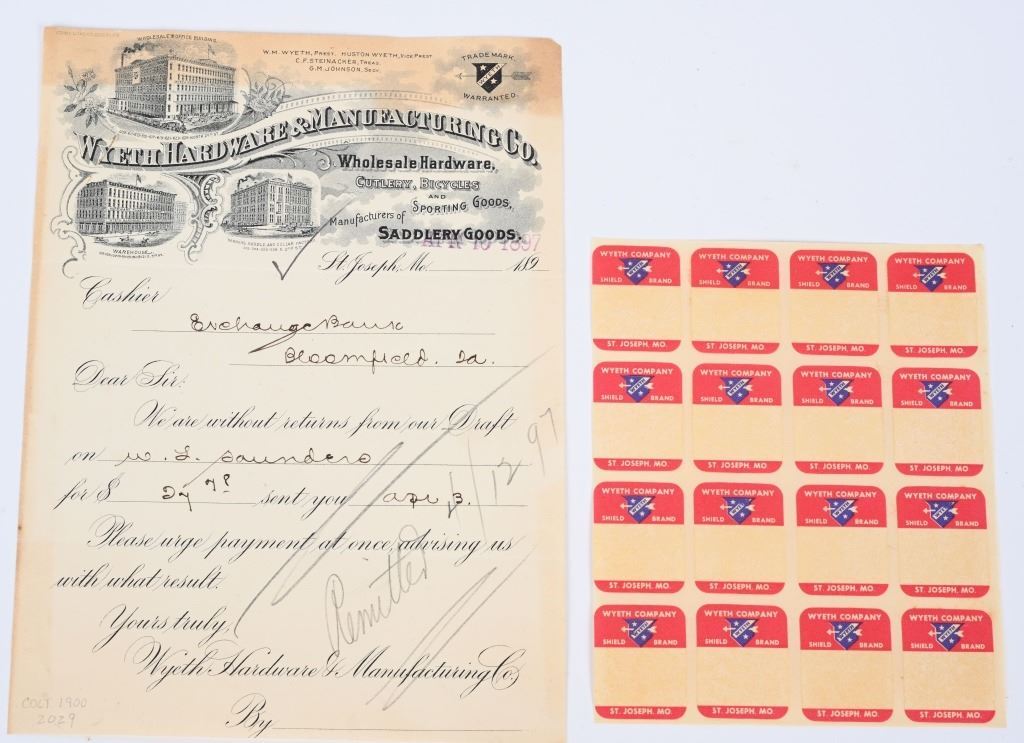 WHOLESALE & OFFICE BUILDING.
W. M. WYETH, PREST. HUSTON WYETH, VICE PREST
C. F. STEINACKER, TREAS.
G. M. JOHNSON, SECY.
TRADE MARK
WYETH
WARRANTED.
WYETH HARDWARE & MANUFACTURING CO.
Wholesale Hardware,
CUTLERY, BICYCLES
AND
SPORTING GOODS,
Manufacturers of
SADDLERY GOODS.
WAREHOUSE
APR 10 1897
St. Joseph, Mo. 189
Cashier
Exchange Bank
Bloomfield. Ia.
Dear Sir:
We are without returns from our Draft
on W. L. Saunders
for $ 27 78 sent you apr 3.
Please urge payment at once, advising us
with what result.
Yours truly,
Wyeth Hardware & Manufacturing Co,
By
Remitted 4/12 97
COLT 1900
2029
WYETH COMPANY WYETH COMPANY WYETH COMPANY WYETH COMPANY
SHIELD WYETH BRAND SHIELD WYETH BRAND SHIELD WYETH BRAND SHIELD WYETH BRAND
ST. JOSEPH, MO. ST. JOSEPH, MO. ST. JOSEPH, MO. ST. JOSEPH, MO.
WYETH COMPANY WYETH COMPANY WYETH COMPANY WYETH COMPANY
SHIELD WYETH BRAND SHIELD WYETH BRAND SHIELD WYETH BRAND SHIELD WYETH BRAND
ST. JOSEPH, MO. ST. JOSEPH, MO. ST. JOSEPH, MO. ST. JOSEPH, MO.
WYETH COMPANY WYETH COMPANY WYETH COMPANY WYETH COMPANY
SHIELD WYETH BRAND SHIELD WYETH BRAND SHIELD WYETH BRAND SHIELD WYETH BRAND
ST. JOSEPH, MO. ST. JOSEPH, MO. ST. JOSEPH, MO. ST. JOSEPH, MO.
WYETH COMPANY WYETH COMPANY WYETH COMPANY WYETH COMPANY
SHIELD WYETH BRAND SHIELD WYETH BRAND SHIELD WYETH BRAND SHIELD WYETH BRAND
ST. JOSEPH, MO. ST. JOSEPH, MO. ST. JOSEPH, MO. ST. JOSEPH, MO.